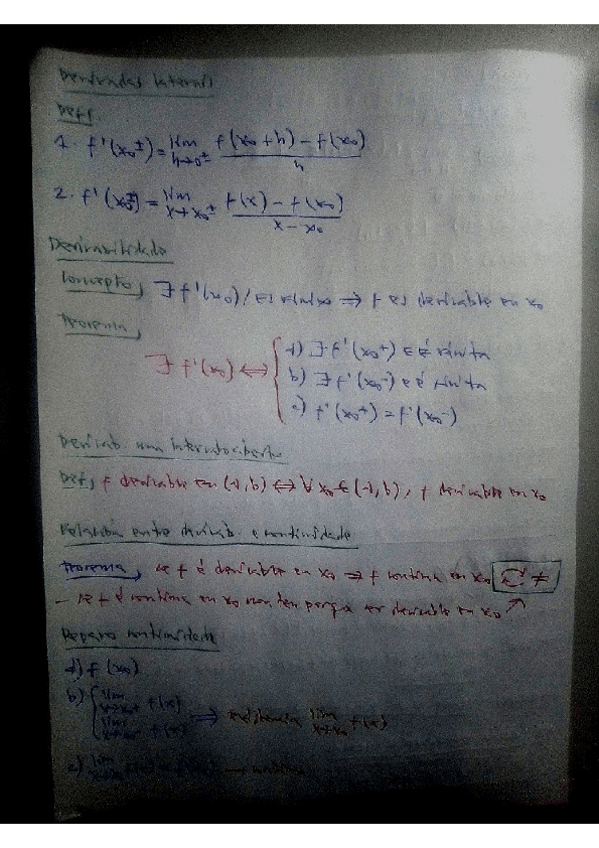 Derivadas laterais
Def.
1. f'(x₀±) = lim h→0± f(x₀+h)-f(x₀) / h
2. f'(x₀±) = lim x→x₀± f(x)-f(x₀) / x-x₀
Derivabilidade
Concepto, ∃ f'(x₀) / es finita ⇒ f es derivable en x₀
Teorema,
∃ f'(x₀) ⟺
a) ∃ f'(x₀⁺) e é finita
b) ∃ f'(x₀⁻) e é finita
c) f'(x₀⁺) = f'(x₀⁻)
Derivab. intervalo aberto
Def, f derivable en (a,b) ⟺ ∀ x₀ ∈ (a,b), f derivable en x₀
Relación entre derivab. e continuidade
Teorema, se f é derivable en x₀ ⇒ f continua en x₀ ≠
- se f é continua en x₀ non ten porqu ser derivable en x₀
Repaso continuidade
a) f(x₀)
b) lim x→x₀⁺ f(x)
lim x→x₀⁻ f(x) ⇒ existencia lim x→x₀ f(x)
c) lim